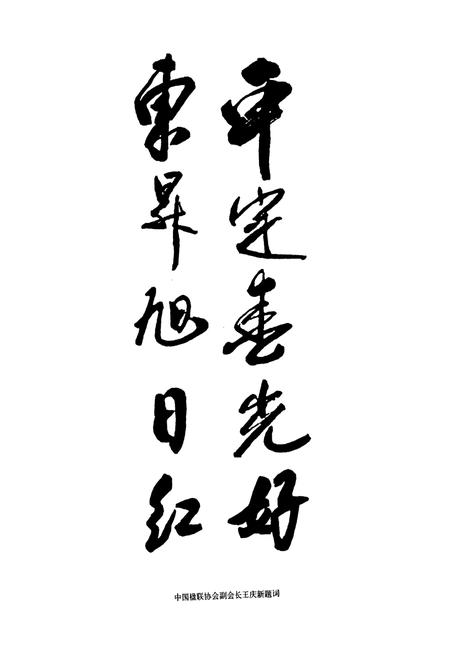 平定春光好
東昇旭日红
中国楹联协会副会长王庆新题词